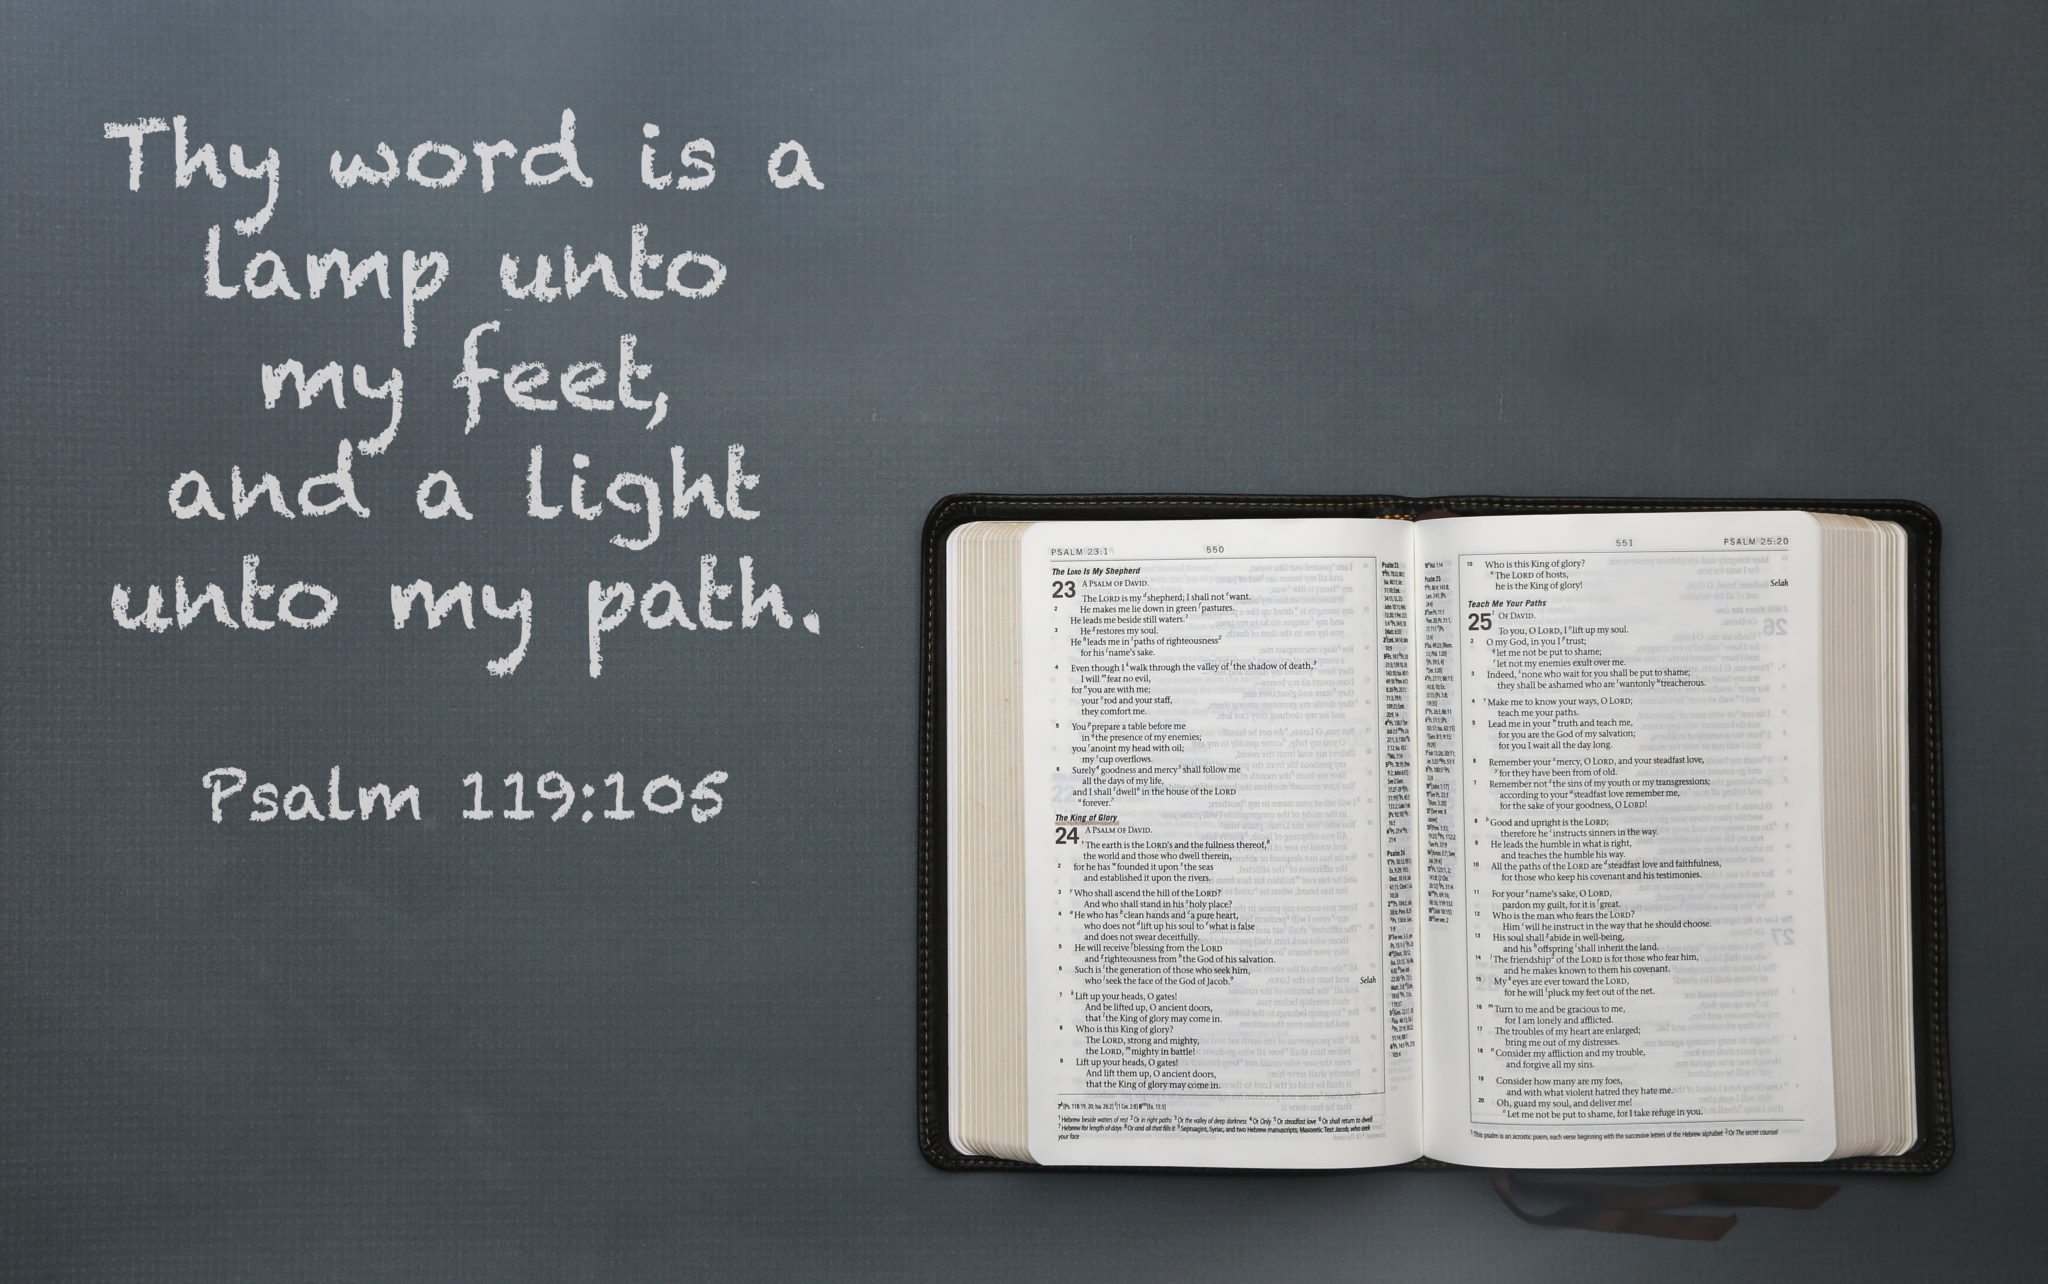 Thy word is a
lamp unto
my feet,
and a light
unto my path.
Psalm 119:105
PSALM 23:1
550
The LORD Is My Shepherd
23 A PSALM OF DAVID.
The LORD is my shepherd; I shall not want.
2 He makes me lie down in green pastures.
He leads me beside still waters.
3 He restores my soul.
He leads me in paths of righteousness
for his name's sake.
4 Even though I walk through the valley of the shadow of death,
I will fear no evil,
for you are with me;
your rod and your staff,
they comfort me.
5 You prepare a table before me
in the presence of my enemies;
you anoint my head with oil;
my cup overflows.
6 Surely goodness and mercy shall follow me
all the days of my life,
and I shall dwell in the house of the LORD
forever.
The King of Glory
24 A PSALM OF DAVID.
The earth is the LORD's and the fullness thereof,
the world and those who dwell therein,
2 for he has founded it upon the seas
and established it upon the rivers.
3 Who shall ascend the hill of the LORD?
And who shall stand in his holy place?
4 He who has clean hands and a pure heart,
who does not lift up his soul to what is false
and does not swear deceitfully.
5 He will receive blessing from the LORD
and righteousness from the God of his salvation.
6 Such is the generation of those who seek him,
who seek the face of the God of Jacob. Selah
7 Lift up your heads, O gates!
And be lifted up, O ancient doors,
that the King of glory may come in.
8 Who is this King of glory?
The LORD, strong and mighty,
the LORD, mighty in battle!
9 Lift up your heads, O gates!
And lift them up, O ancient doors,
that the King of glory may come in.
1 Hebrew beside waters of rest 2 Or in right paths 3 Or the valley of deep darkness 4 Or Only 5 Or steadfast love 6 Or shall return to dwell
7 Hebrew for length of days 8 Or and all that fills it 9 Septuagint, Syriac, and two Hebrew manuscripts; Masoretic Text Jacob, who seek
your face
551
PSALM 25:20
10 Who is this King of glory?
The LORD of hosts,
he is the King of glory! Selah
Teach Me Your Paths
25 OF DAVID.
To you, O LORD, I lift up my soul.
2 O my God, in you I trust;
let me not be put to shame;
let not my enemies exult over me.
3 Indeed, none who wait for you shall be put to shame;
they shall be ashamed who are wantonly treacherous.
4 Make me to know your ways, O LORD;
teach me your paths.
5 Lead me in your truth and teach me,
for you are the God of my salvation;
for you I wait all the day long.
6 Remember your mercy, O LORD, and your steadfast love,
for they have been from of old.
7 Remember not the sins of my youth or my transgressions;
according to your steadfast love remember me,
for the sake of your goodness, O LORD!
8 Good and upright is the LORD;
therefore he instructs sinners in the way.
9 He leads the humble in what is right,
and teaches the humble his way.
10 All the paths of the LORD are steadfast love and faithfulness,
for those who keep his covenant and his testimonies.
11 For your name's sake, O LORD,
pardon my guilt, for it is great.
12 Who is the man who fears the LORD?
Him will he instruct in the way that he should choose.
13 His soul shall abide in well-being,
and his offspring shall inherit the land.
14 The friendship of the LORD is for those who fear him,
and he makes known to them his covenant.
15 My eyes are ever toward the LORD,
for he will pluck my feet out of the net.
16 Turn to me and be gracious to me,
for I am lonely and afflicted.
17 The troubles of my heart are enlarged;
bring me out of my distresses.
18 Consider my affliction and my trouble,
and forgive all my sins.
19 Consider how many are my foes,
and with what violent hatred they hate me.
20 Oh, guard my soul, and deliver me!
Let me not be put to shame, for I take refuge in you.
1 This psalm is an acrostic poem, each verse beginning with the successive letters of the Hebrew alphabet 2 Or The secret counsel